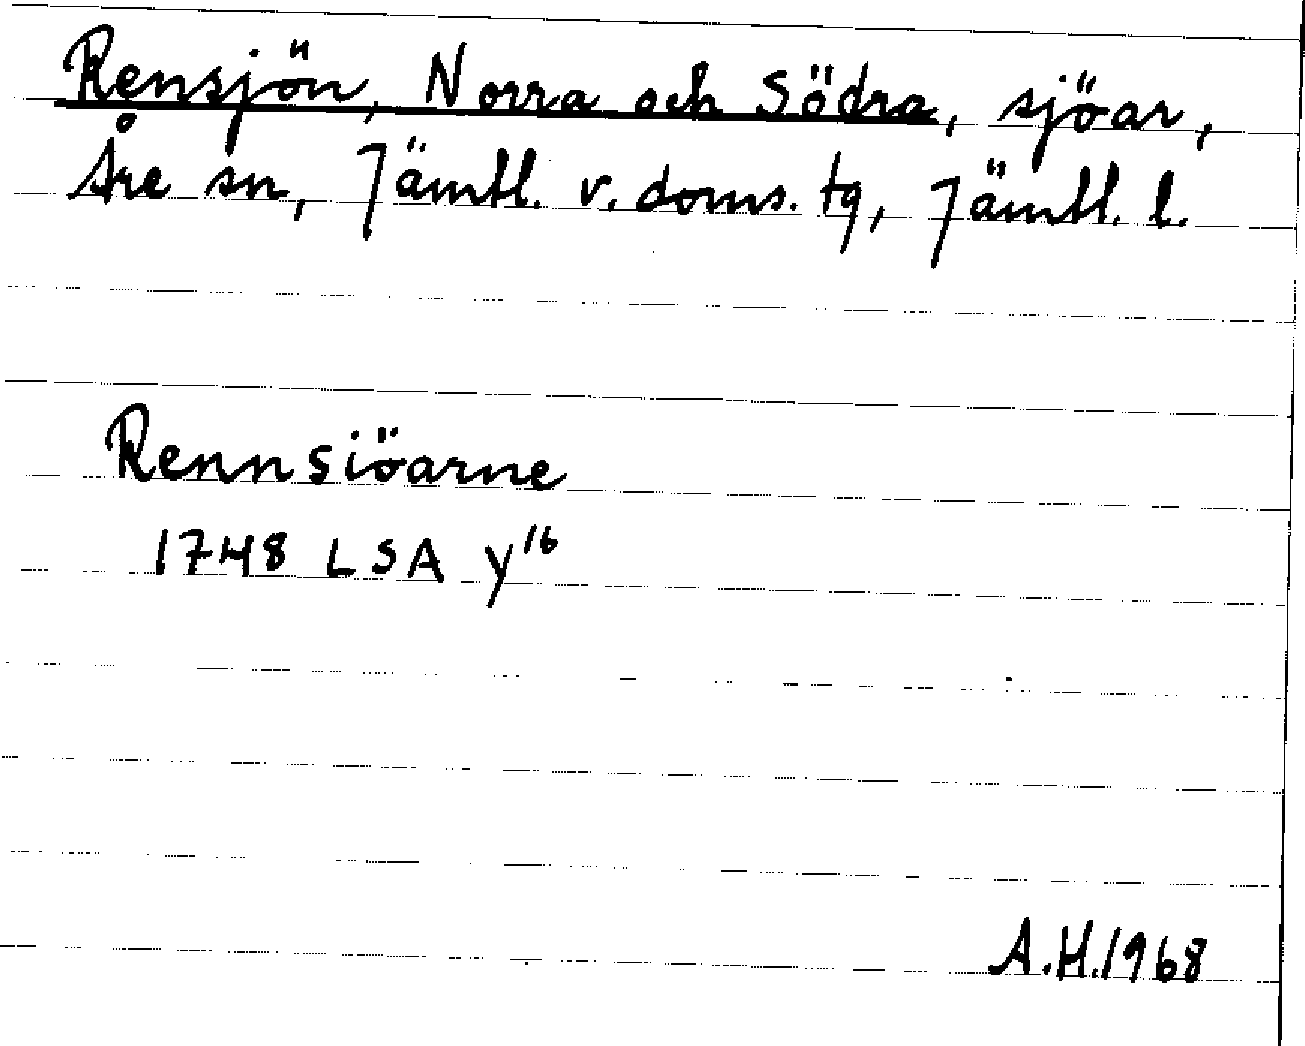 Rensjön, Norra och Södra, sjöar,
Åre sn, Jämtl. v. doms. tg, Jämtl. l.
Rennsiöarne
1748 LSA y¹⁶
A.H.1968